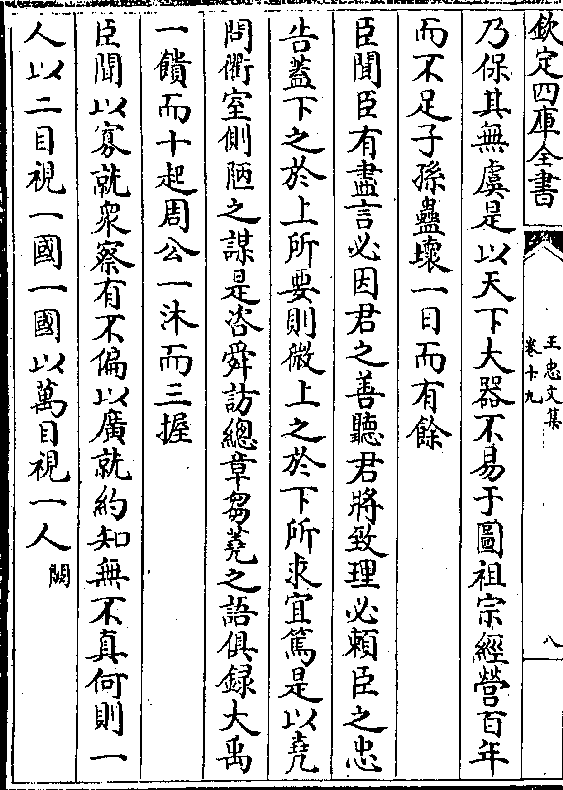 欽定四庫全書
王忠文集
卷十九
八
乃保其無虞是以天下大器不易于圖祖宗經營百年
而不足子孫蠱壞一日而有餘
臣聞臣有盡言必因君之善聽君將致理必賴臣之忠
告蓋下之於上所要則微上之於下所求宜篤是以堯
問衢室側陋之謀是咨舜訪總章芻蕘之語俱録大禹
一饋而十起周公一沐而三握
臣聞以寡就衆察有不偏以廣就約知無不真何則一
人以二目視一國一國以萬目視一人闕